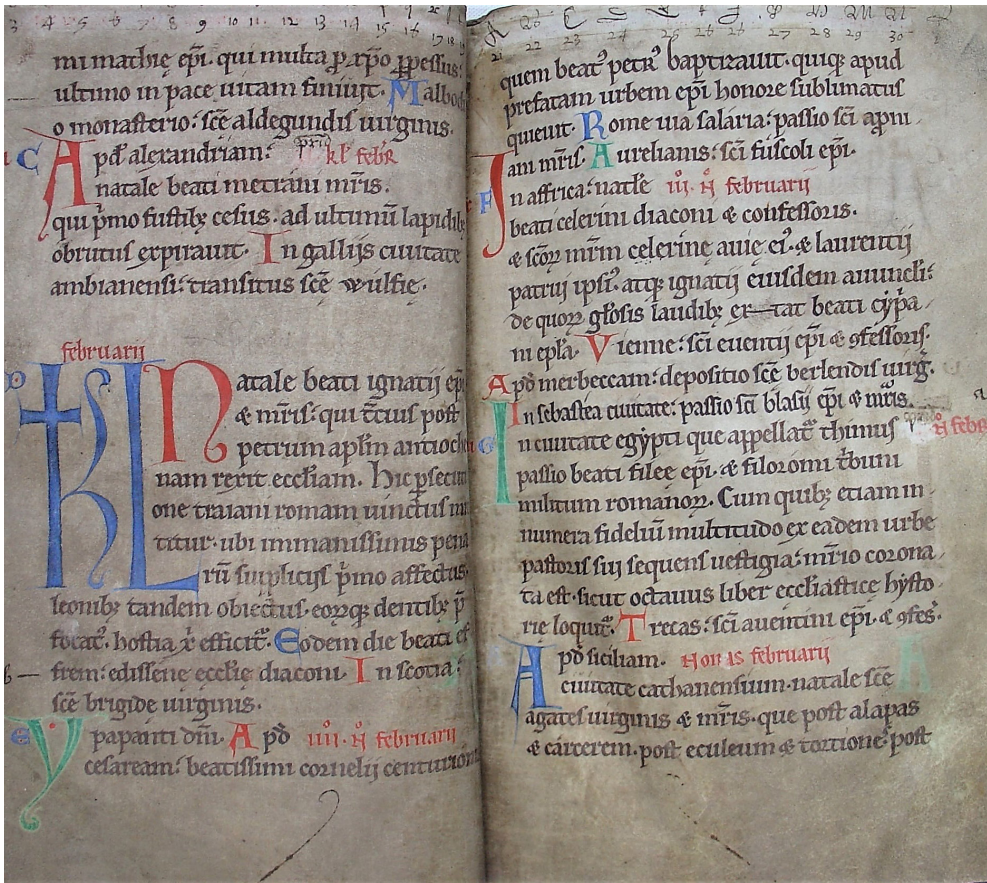 3 4 5 6 8 9 10 11 12 13 14 15 16 17 18
mi mathię ep̄i. qui multa ꝓ xp̄o ꝑpessus:
ultimo in pace uitam finiuit. Malbodi
o monasterio: scē aldegundis uirginis.
C Apd̄ alexandriam: prid kl̄ febr̄
natale beati metrani mr̄is.
qui p̄mo fustib; cesus. ad ultimū lapidib;
obrutus expirauit. In gallijs ciuitate
ambianensi: transitus scē wulfię.
februarij
KL Natale beati ignatij ep̄i
& mr̄is: qui t̄cius post
petrum ap̄lm antioche
nam rexit ecclīam. Hic psecuti
one traiani romam uinctus mi
titur. ubi immanissimis pena
rū suppliciis p̄mo affectus.
leonib; tandem obiectus. eorꝗ dentib; p̄
focat̄. hostia x̄ efficit̄. Eodem die beati ef
frem: edissene ecclīe diaconi. In scotia:
scē brigide uirginis.
e Ypapanti dn̄i. Apd̄ iiij. N̄ februarij
cesaream: beatissimi cornelij centurionis
22 23 24 25 26 27 28 29 30
quem beat᾿ petr᾿ baptizauit. quiq; apud
prefatam urbem ep̄i honore sublimatus
quieuit. Rome uia salaria: passio sc̄i apni
ani mr̄is. Aurelianis: sc̄i fuscoli ep̄i.
F In affrica: natl̄e iij. N̄ februarij
beati celerini diaconi & confessoris.
& scōꝝ mr̄m celerinę auię ei᾿. & laurentij
patrui ipsi᾿. atq; ignatij eiusdem auunculi:
de quoꝝ gl̄osis laudib; extat beati cyp̄a
ni epl̄a. Vienne: sc̄i euentij ep̄i & ɔfessoris.
Apd̄ merbeccam: depositio scē berlendis uirḡ.
In sebastea ciuitate: passio sc̄i blasij ep̄i & mr̄is.
In ciuitate egypti que appellat̄ thimus N̄ febr
passio beati filee ep̄i. & filoromi t̄buni
militum romanoꝝ. Cum quib; etiam in
numera fidelium multitudo ex eadem urbe
pastoris sui sequens uestigia: mr̄io corona
ta est. sicut octauus liber ecclīasticę hysto
rię loquit̄. Trecas: sc̄i auentini ep̄i. & ɔfes̄.
Apd̄ siciliam. Nonis februarij
ciuitate cathanensium. natale scē
agates uirginis & mr̄is. que post alapas
& carcerem. post eculeum & tortiones. post